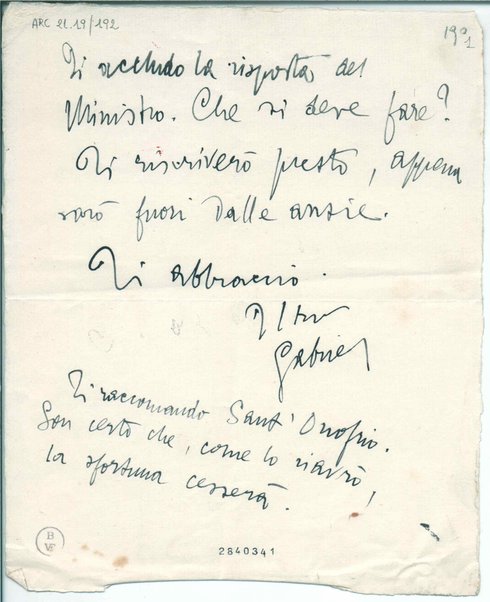 ARC 21.19/192
19²1
Ti accludo la risposta del
Ministro. Che si deve fare?
Ti riscriverò presto, appena
sarò fuori dalle ansie.
Ti abbraccio.
Il tuo
Gabriel
Ti raccomando Sant'Onofrio.
Son certo che, come lo riavrò,
la sfortuna cesserà.
B
VE
2840341